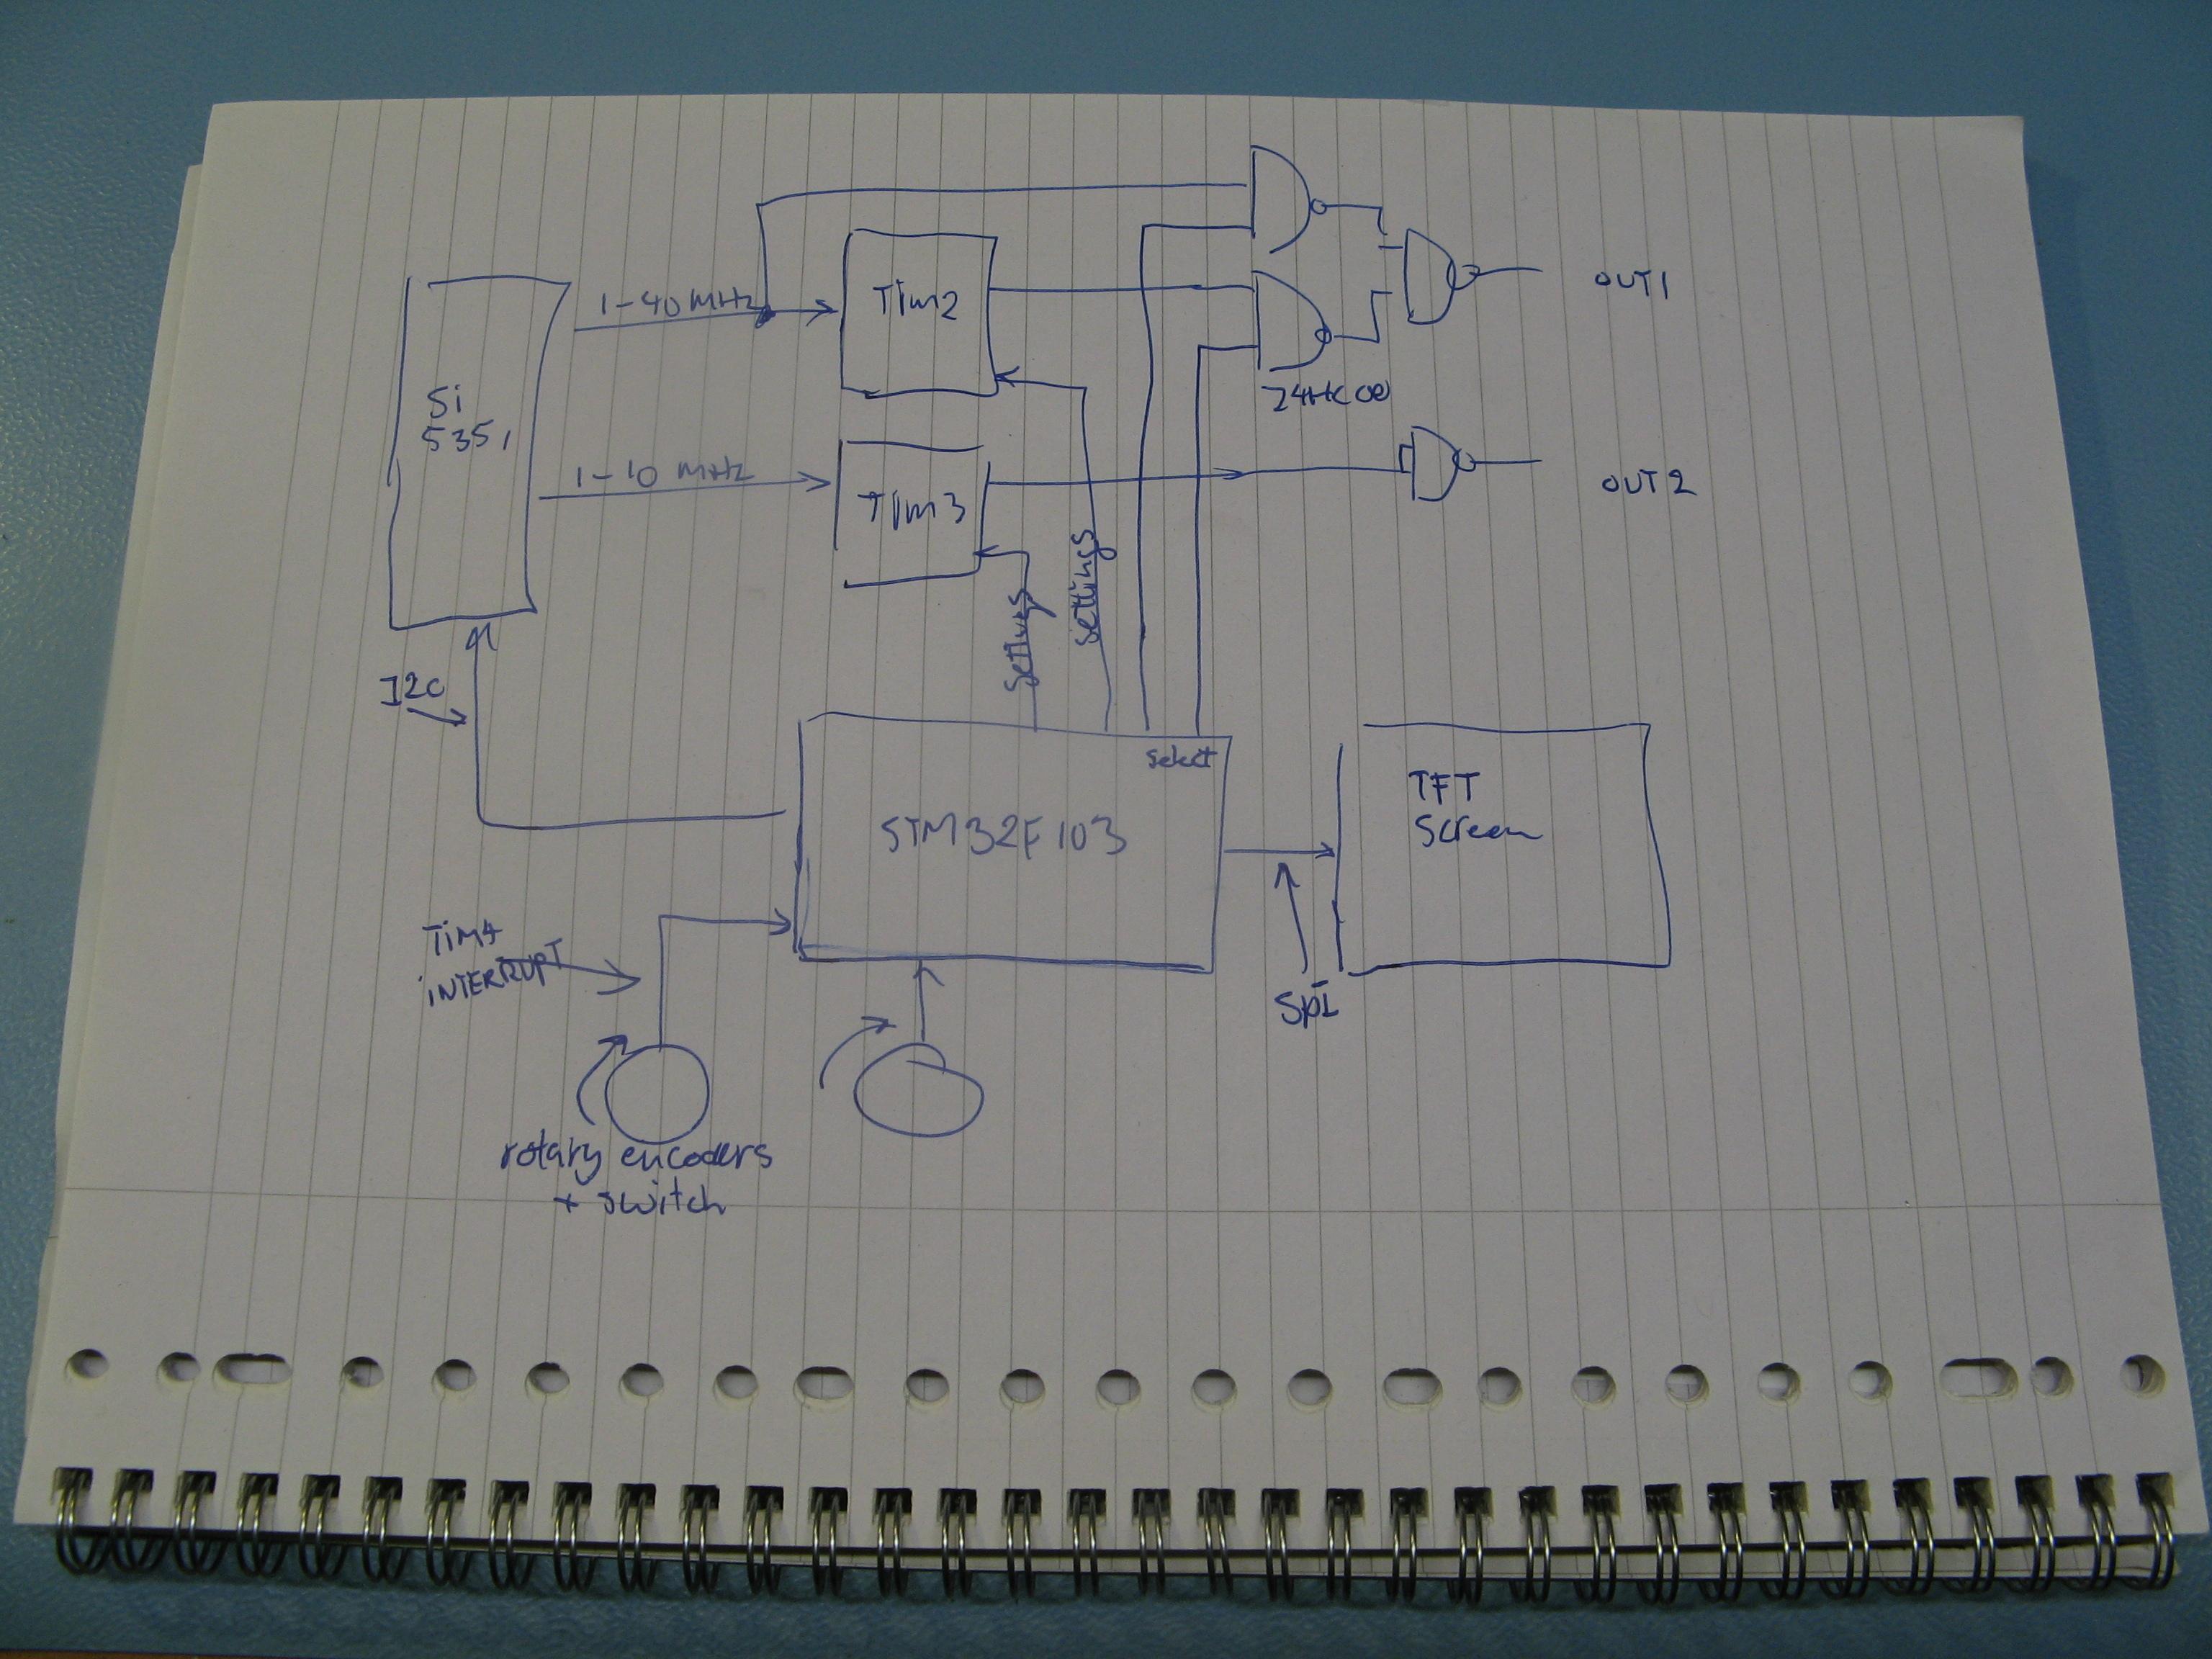 1-40 MHz
TIM2
OUT1
Si
5351
74HC00
1-10 MHz
TIM3
OUT2
settings
settings
I2C
select
STM32F103
TFT
Screen
TIM4
INTERRUPT
SPI
rotary encoders
+ switch